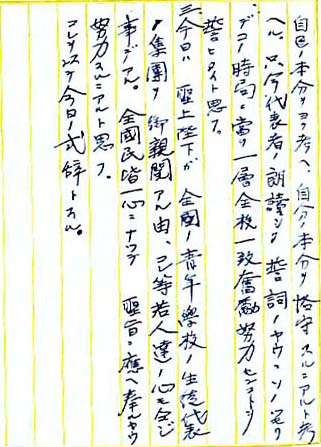 自己ノ本分ヲヨク考ヘ、自分ノ本分ヲ恪守スルニアルト考
ヘル。只今代表者ノ朗讀シタ誓詞ノヤウニソノ心モ
デコノ時局ニ當リ一層全校一致奮勵努力センコトヲ
誓ヒタイト思フ。
三、今日ハ聖上陛下ガ全國ノ青年學校ノ生徒代表
ノ集團ヲ御親閲アル由、コレ等若人達ノ心モ全ジ
事デアル。全國民皆一心ニナツテ聖旨ニ應ヘ奉ルヤウ
努力スルニアルト思フ。
コレヲ以テ今日ノ式辞トスル。